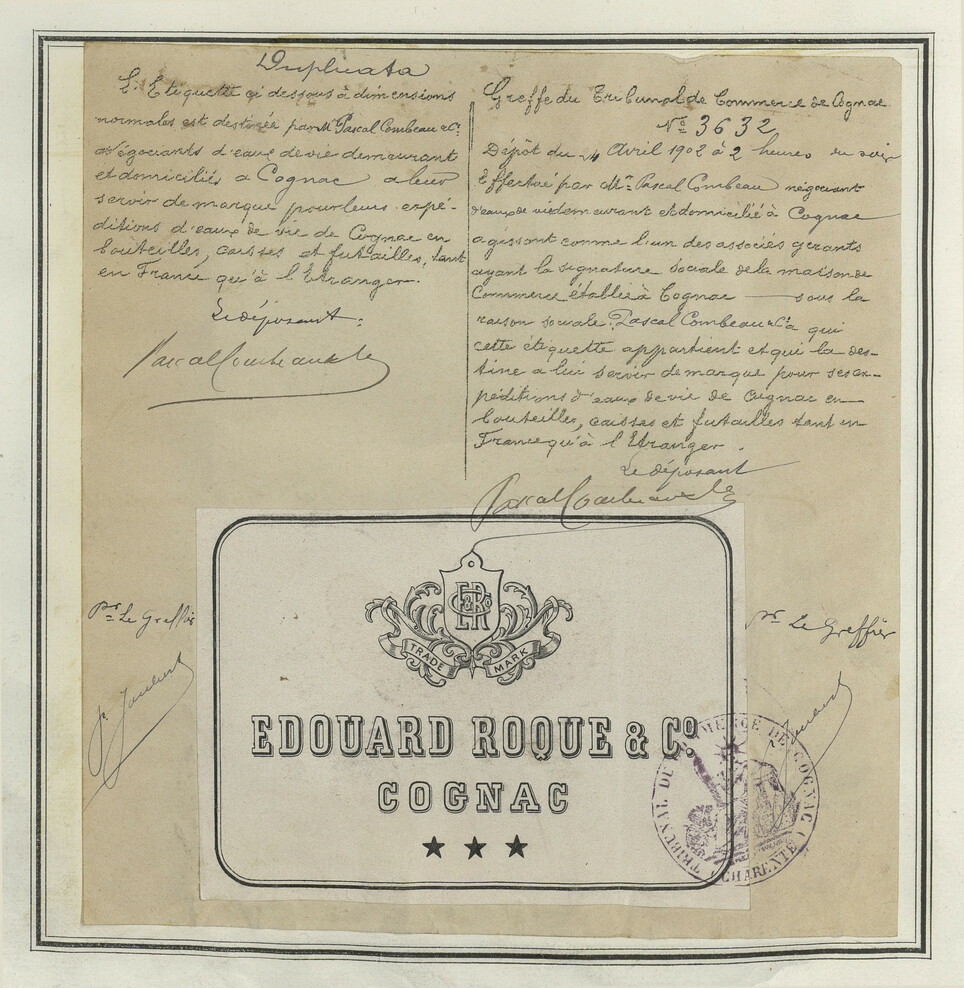 Duplicata
L'Etiquette ci dessous à dimensions
normales est destinée par Mr Pascal Combeau & Cie
Négociants d'eaux de vie demeurant
et domiciliés a Cognac a leur
servir de marque pour leurs expé-
ditions d'eaux de vie de Cognac en
bouteilles, caisses et futailles, tant
en France qu'à l'Etranger.
Le déposant:
Pascal Combeau & Cie
Greffe du Tribunal de Commerce de Cognac
No 3632
Dépôt du 24 Avril 1902 à 2 heures du soir
Effectué par Mr Pascal Combeau négociant
d'eaux de vie demeurant et domicilié à Cognac
agissant comme l'un des associés gérants
ayant la signature sociale de la maison de
Commerce établie à Cognac — sous la
raison sociale: Pascal Combeau & Cie à qui
cette étiquette appartient et qui la des-
tine a lui servir de marque pour ses ex-
péditions d'eaux de vie de Cognac en
bouteilles, caisses et futailles tant en
France qu'à l'Etranger.
Le déposant
Pascal Combeau & Cie
pr Le Greffier
pr Le Greffier
ER & Co
TRADE MARK
EDOUARD ROQUE & Co.
COGNAC
★ ★ ★
TRIBUNAL DE COMMERCE DE COGNAC (CHARENTE)